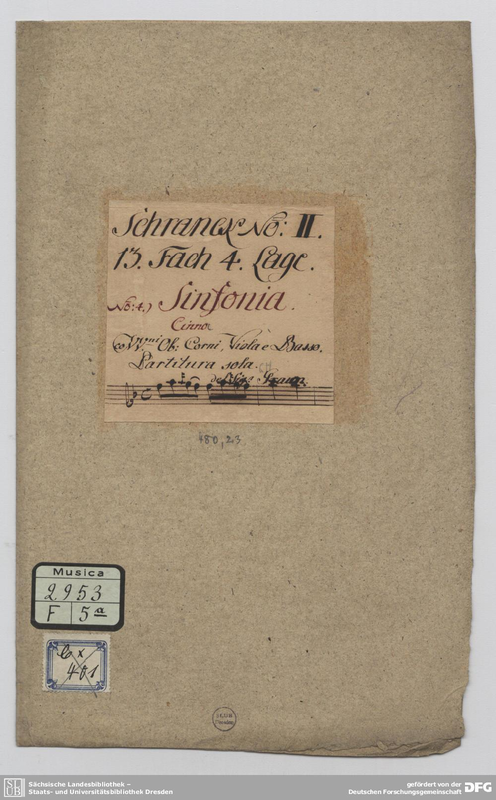 Schranck No: II.
13. Fach 4. Lage.
No: 4.) Sinfonia.
Cinna
co VVni Ob: Corni, Viola è Basso.
Partitura sola.
del Sigr. Graun.
480,23
Musica
2953
F 5a
Cx
401
SLUB
Dresden
Sächsische Landesbibliothek –
Staats- und Universitätsbibliothek Dresden
gefördert von der
Deutschen Forschungsgemeinschaft DFG